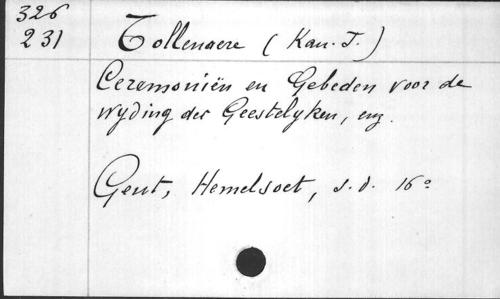 326
231
Tollenaere (Kan. J.)
Ceremoniën en Gebeden voor de
wyding der Geestelyken, enz.
Gent, Hemelsoet, s.d. 16°